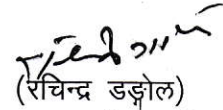 (रचिन्द्र डङ्गोल)